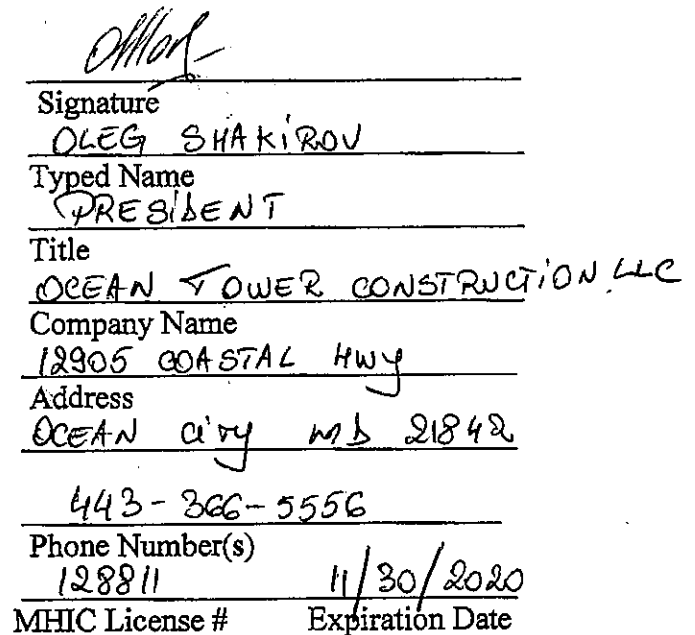 Signature
OLEG SHAKIROV
Typed Name
PRESIDENT
Title
OCEAN TOWER CONSTRUCTION LLC
Company Name
12905 COASTAL HWY
Address
OCEAN City MD 21842
443-366-5556
Phone Number(s)
128811 11/30/2020
MHIC License # Expiration Date